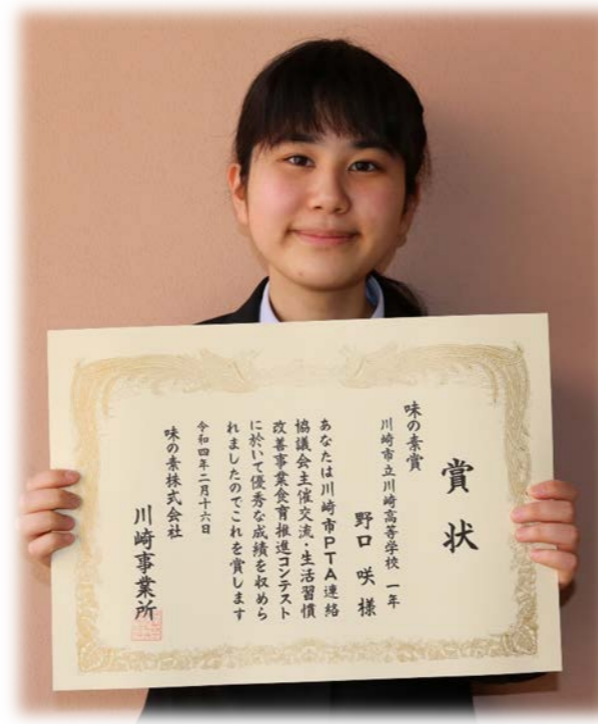 賞状
味の素賞
川崎市立川崎高等学校 一年
野口 咲 様
あなたは川崎市PTA連絡
協議会主催交流・生活習慣
改善事業食育推進コンテスト
に於いて優秀な成績を収めら
れましたのでこれを賞します
令和四年二月十六日
味の素株式会社
川崎事業所